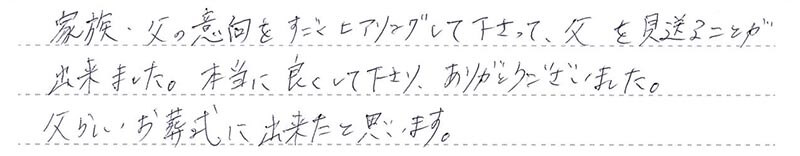 家族・父の意向をすごくヒアリングして下さって、父を見送ることが
出来ました。本当に良くして下さり、ありがとうございました。
父らしいお葬式に出来たと思います。